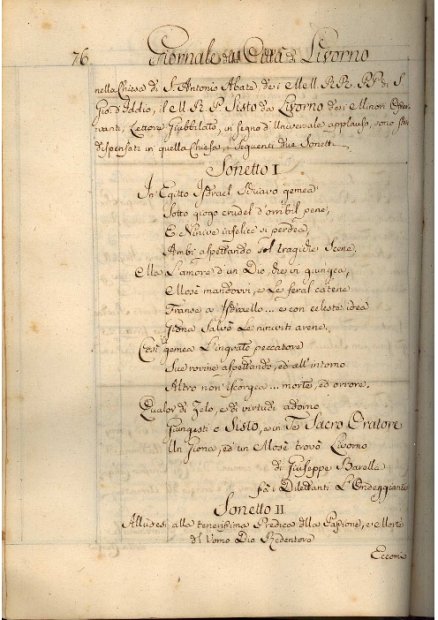 76 Giornale della Città di Livorno
nella Chiesa di S. Antonio Abate de i M. RR. PP. di S.
Gio. d'Iddio, il M. R. P. Sisto da Livorno de i Minori Osser-
vanti, Lettore Giubbilato, in segno d'Universale applauso, sono stati
dispensati in quella Chiesa, i seguenti due Sonetti
Sonetto I
In Egitto Isdrael schiavo gemea
Sotto giogo crudel d'orribil pene,
E Ninive infelice si perdea,
Ambi aspettando sol tragiche scene,
Ma l'amore d'un Dio, che si giungea,
Mosè mandovvi, e le feral catene
Franse a Isdraello... e con celeste idea
Giona salvò le niniviti arene.
Così gemea l'ingrato peccatore
Sue rovine aspettando, ed all'intorno
Altro non iscorgea... morte, ed orrore.
Qualor di Zelo, e di virtude adorno
Giungesti o Sisto, e in Te Sacro Oratore
Un Giona, ed un Mosè trovò Livorno
di Giuseppe Barella
fra i Dilettanti L'Ondeggiante
Sonetto II
Alludesi alla tenerissima Predica della Passione, e Morte
del Uomo Dio Redentore
Eccomi